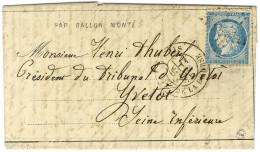 PAR BALLON MONTÉ
Monsieur Henri Thubeuf
Président du Tribunal d'Yvetot
Yvetot
Seine Inférieure